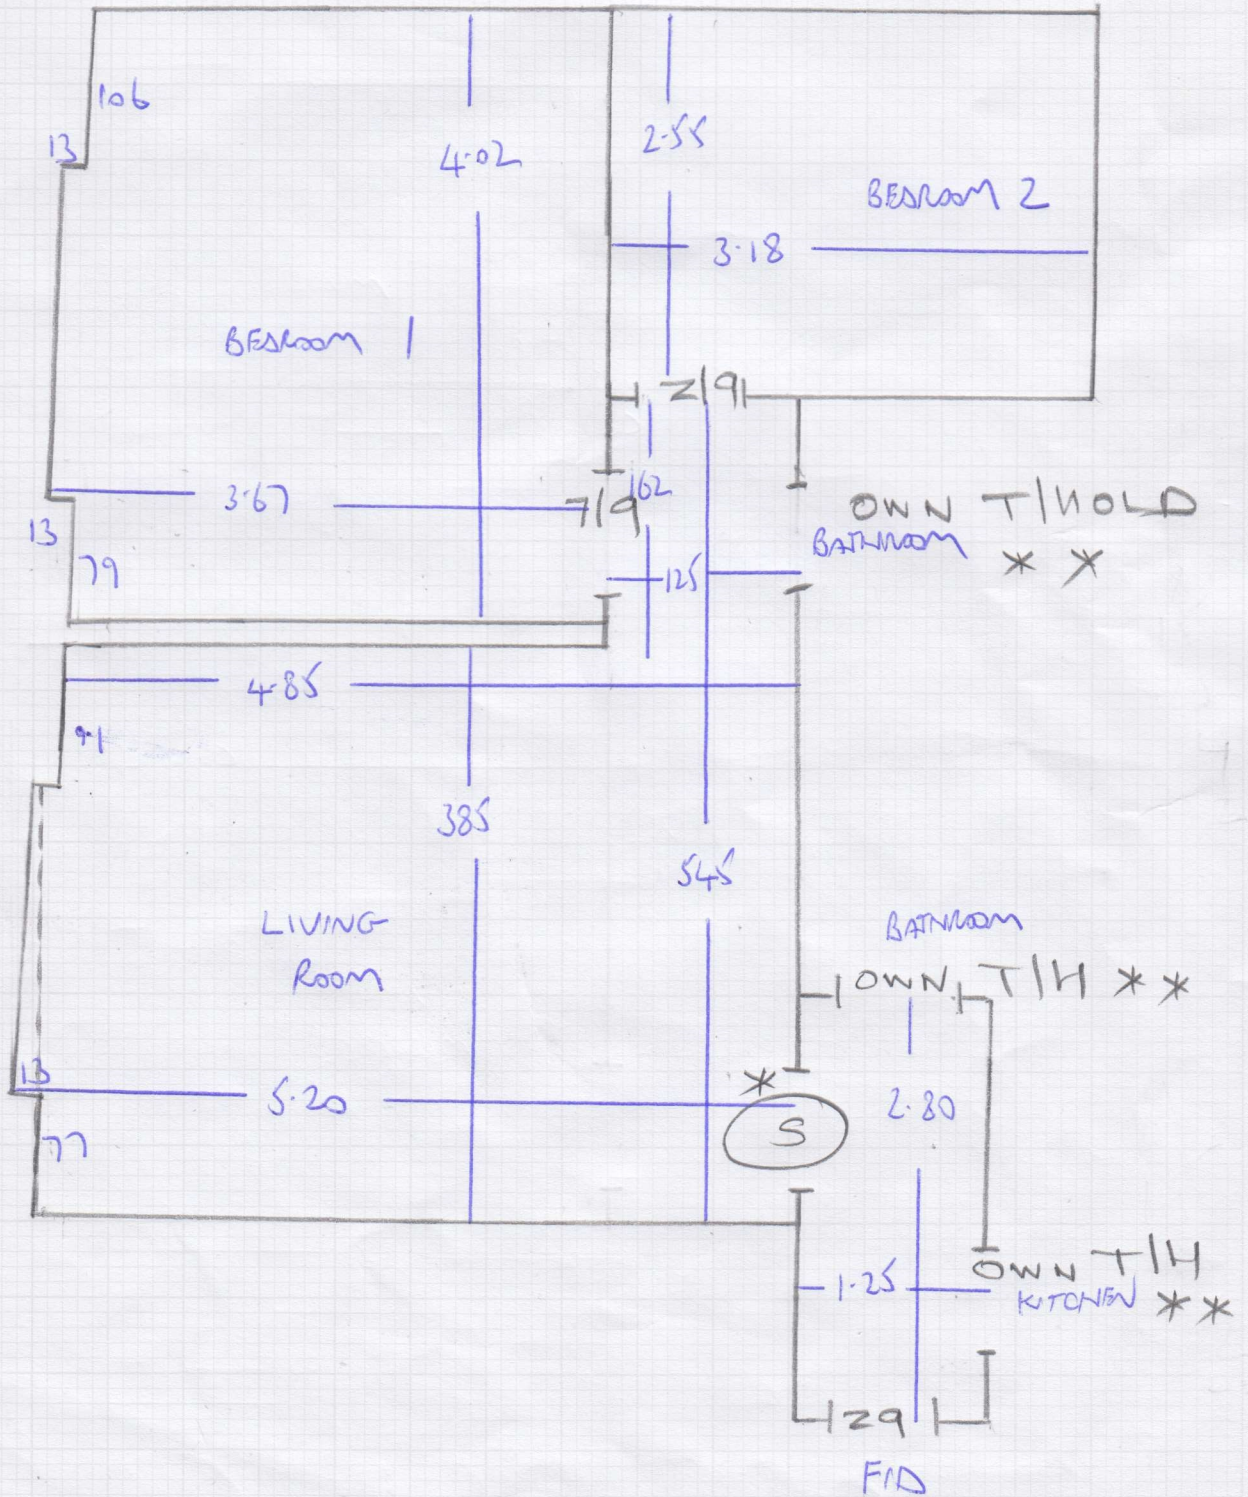 106
13
4.02
2.55
BEDROOM 2
3.18
BEDROOM 1
Z/9
3.67
7/9
162
OWN T/HOLD
BATHROOM
* *
13
79
125
4.85
91
385
545
LIVING
ROOM
BATHROOM
OWN T/H * *
13
5.20
*
S
2.80
77
1.25
OWN T/H
KITCHEN * *
Z9
F/D